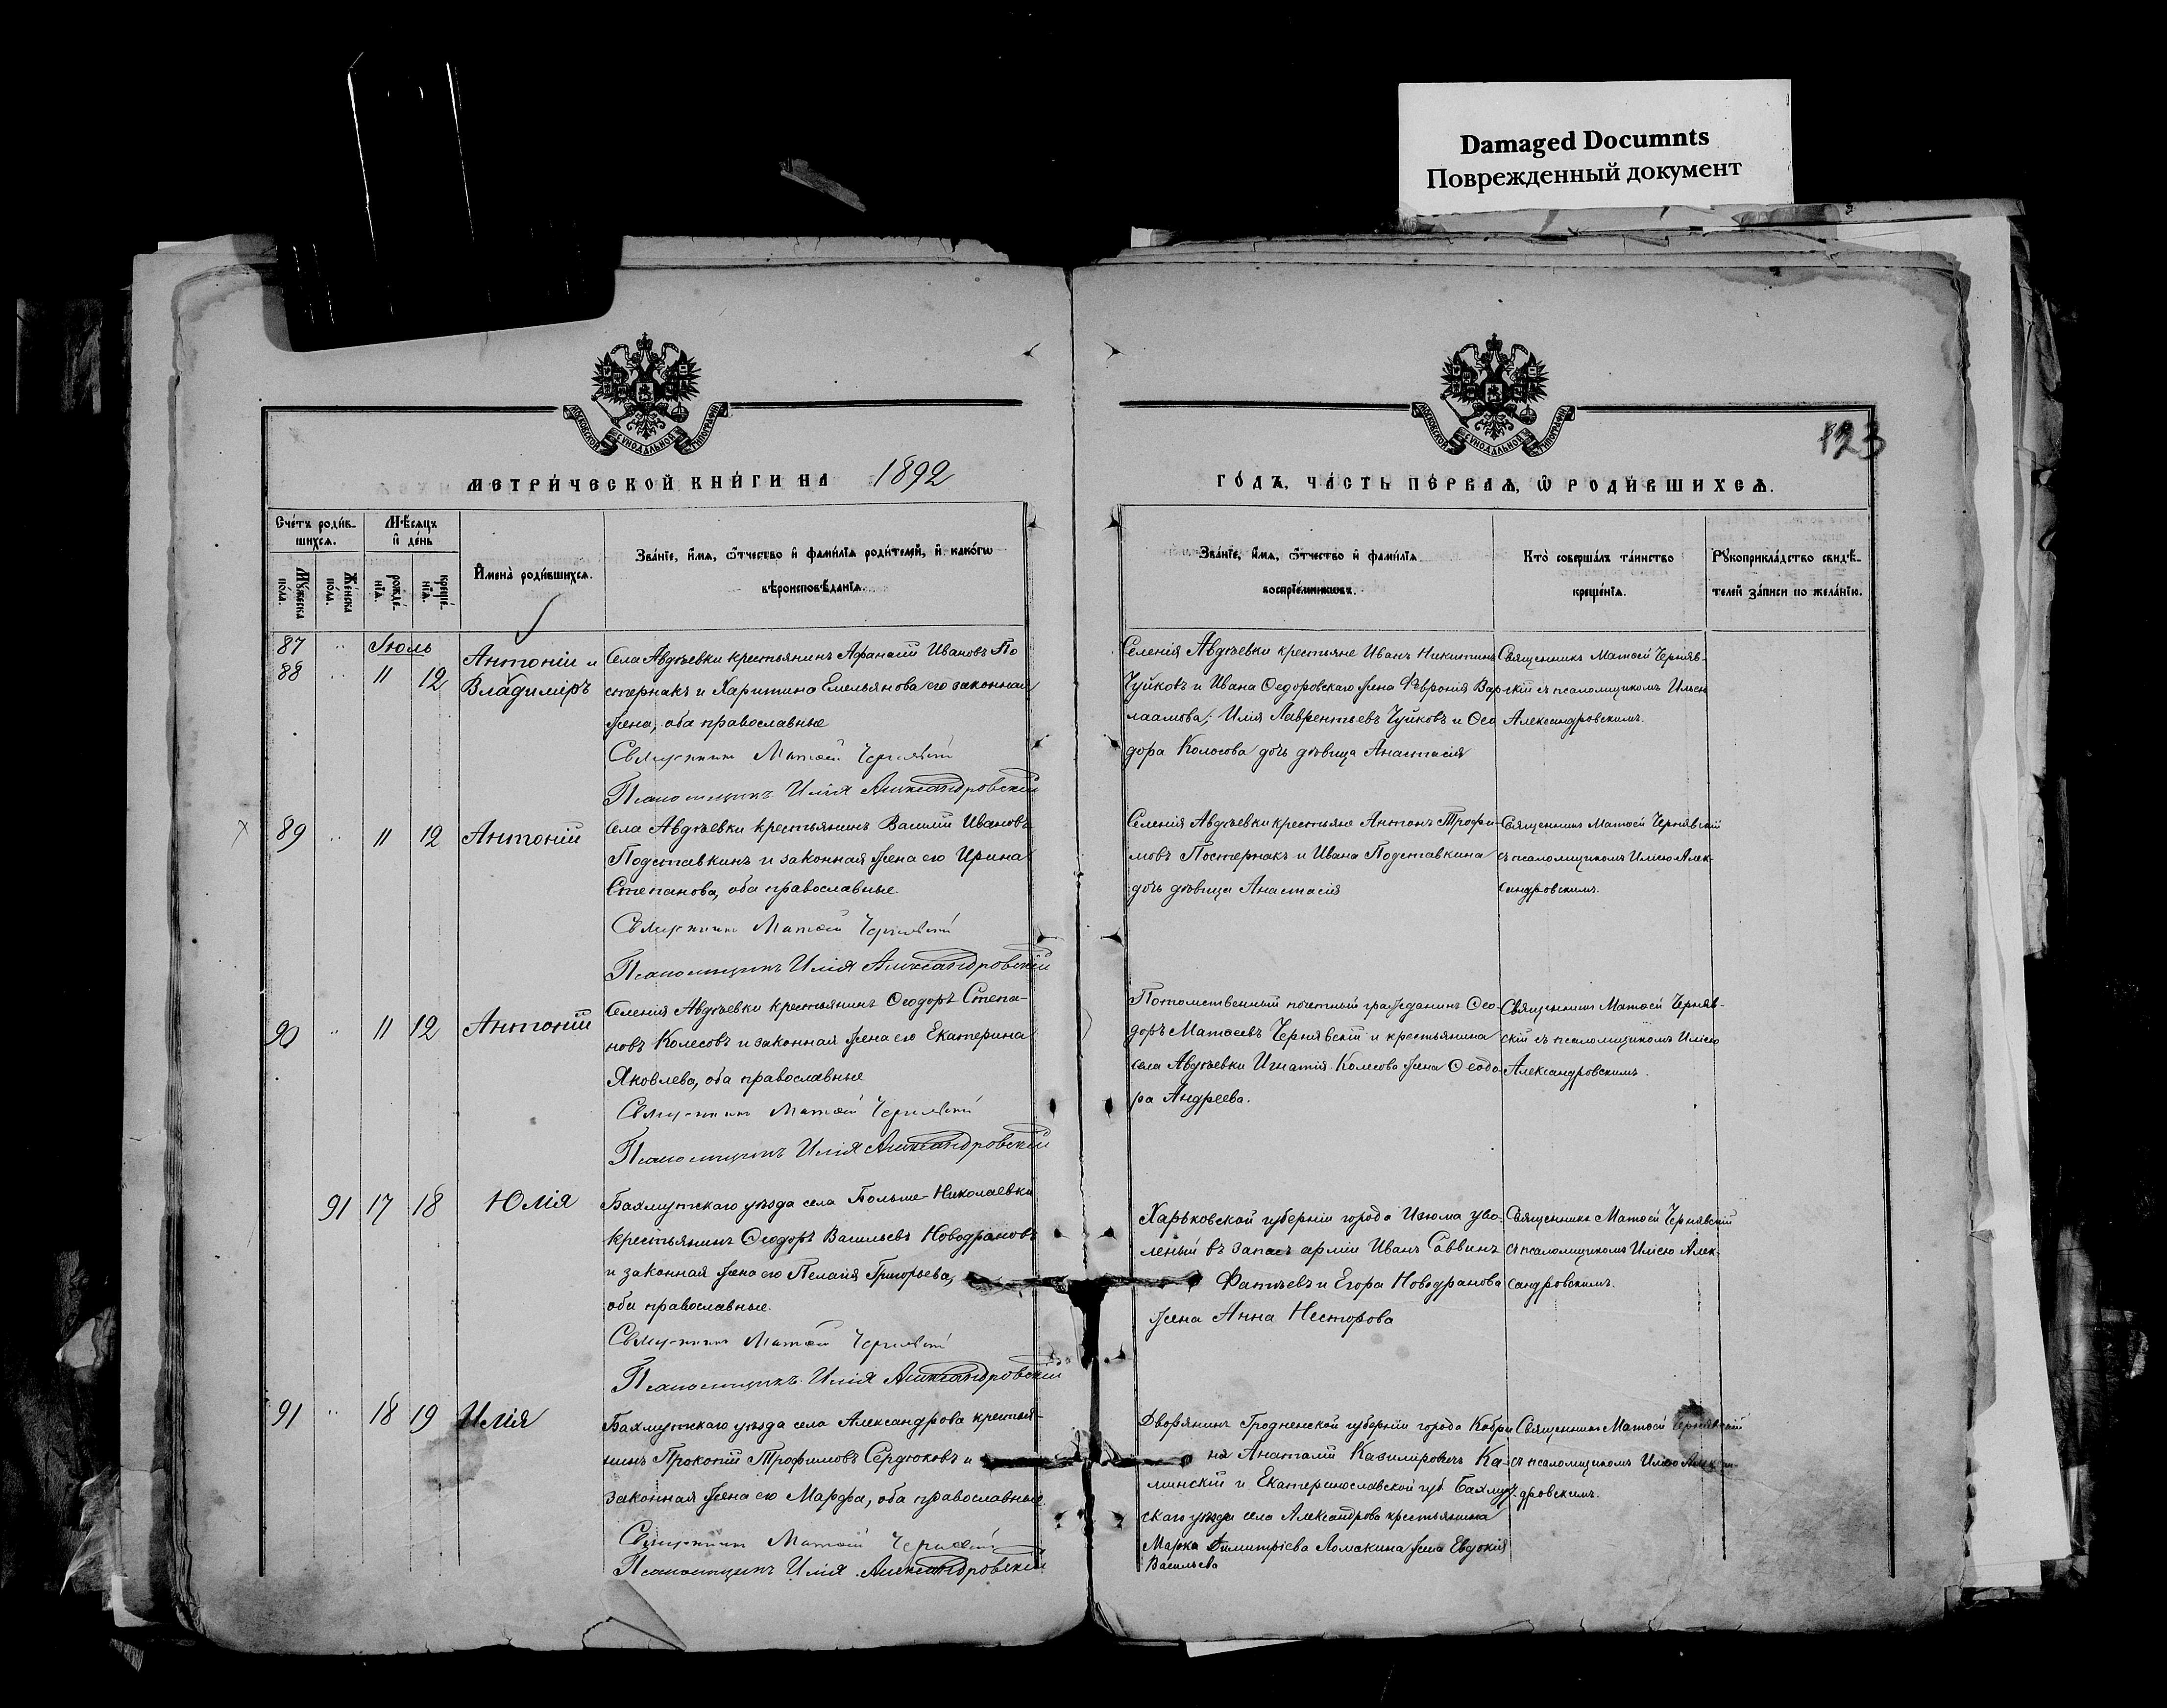 Damaged Documnts
Поврежденный документ
МОСКОВСКОЙ СѴНОДАЛЬНОЙ ТИПОГРАФІИ
МОСКОВСКОЙ СѴНОДАЛЬНОЙ ТИПОГРАФІИ
123
МЕТРИ́ЧЕСКОЙ КНИ́ГИ НА 1892
ГО́ДЪ, ЧА́СТЬ ПЕ́РВАѦ, Ѡ РОДИ́ВШИХСѦ.
Сче́тъ роди́в-
шихсѧ.
Мꙋ́жеска по́ла.
Же́нска по́ла.
Мѣ́сѧцъ и҆ де́нь
рожде́-нїѧ.
креще́-нїѧ.
И҆мена̀ роди́вшихсѧ.
Зва́нїе, и҆́мѧ, ѻ҆́тчество и҆ фами́лїѧ роди́телей, и҆ како́гѡ
вѣроисповѣ́данїѧ.
Зва́нїе, и҆́мѧ, ѻ҆́тчество и҆ фами́лїѧ
воспрїе́мникѡвъ.
Кто̀ соверша́лъ та́инство
креще́нїѧ.
Рꙋкоприкла́дство свидѣ́-
телей за́писи по жела́нїю.
87 " Іюль
88 " 11 12
Антоній и
Владиміръ
Села Авдѣевки крестьянинъ Афанасій Ивановъ По
стернакъ и Харитина Емельянова его законная
жена, оба православные
Священникъ Матѳей Чернявскій
Псаломщикъ Илія Александровскій
Селенія Авдѣевки крестьяне Иванъ Никитинъ
Чуйковъ и Ивана Ѳедоровскаго жена Ѳевронія Вар
лаамова; Илія Лаврентьевъ Чуйковъ и Ѳео
дора Колосова дочь дѣвица Анастасія
Священникъ Матѳей Черняв-
скій съ псаломщикомъ Иліею
Александровскимъ.
89 " 11 12 Антоній
Села Авдѣевки крестьянинъ Василій Ивановъ
Подставкинъ и законная жена его Ирина
Степанова, оба православные.
Священникъ Матѳей Чернявскій
Псаломщикъ Илія Александровскій
Селенія Авдѣевки крестьяне Антонъ Трофи-
мовъ Постернакъ и Ивана Подставкина
дочь дѣвица Анастасія
Священникъ Матѳей Чернявскій
съ псаломщикомъ Иліею Алек-
сандровскимъ.
90 " 11 12 Антоній
Селенія Авдѣевки крестьянинъ Ѳеодоръ Степа-
новъ Колесовъ и законная жена его Екатерина
Яковлева, оба православные
Священникъ Матѳей Чернявскій
Псаломщикъ Илія Александровскій
Потомственный почетный гражданинъ Ѳео
доръ Матѳеевъ Чернявскій и крестьянина
села Авдѣевки Игнатія Колесова жена Ѳеодо
ра Андреева.
Священникъ Матѳей Черняв-
скій съ псаломщикомъ Иліею
Александровскимъ.
91 17 18 Юлія
Бахмутскаго уѣзда села Больше-Николаевки
крестьянинъ Ѳеодоръ Васильевъ Новодрановъ
и законная жена его Пелагія Григорьева,
оба православные.
Священникъ Матѳей Чернявскій
Псаломщикъ Илія Александровскій
Харьковской губерніи города Изюма уво-
леный въ запасъ арміи Иванъ Саввинъ
Фатѣевъ и Егора Новодранова
жена Анна Несторова
Священникъ Матѳей Чернявскій
съ псаломщикомъ Иліею Алек-
сандровскимъ.
91 " 18 19 Илія
Бахмутскаго уѣзда села Александрова крестья-
нинъ Прокопій Трофимовъ Сердюковъ и
законная жена его Марфа, оба православные.
Священникъ Матѳей Чернявскій
Псаломщикъ Илія Александровскій
Дворянинъ Гродненской губерніи города Кобри
на Анатолій Казиміровичъ Ка-
минскій и Екатеринославской губ. Бахмут-
скаго уѣзда села Александрова крестьянина
Марка Димитріева Ломакина жена Евдокія
Васильева
Священникъ Матѳей Чернявскій
съ псаломщикомъ Иліею Алексан-
дровскимъ.